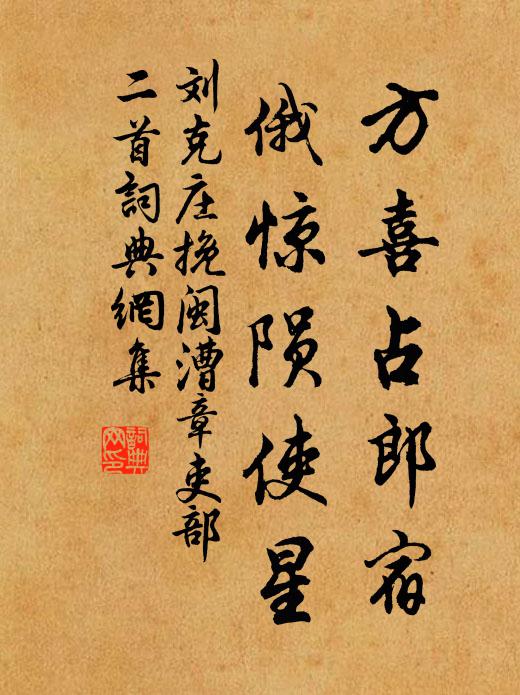 方喜占郎宿
俄惊陨使星
刘克庄挽闽漕章吏部
二首詞典網集
詞典
网印